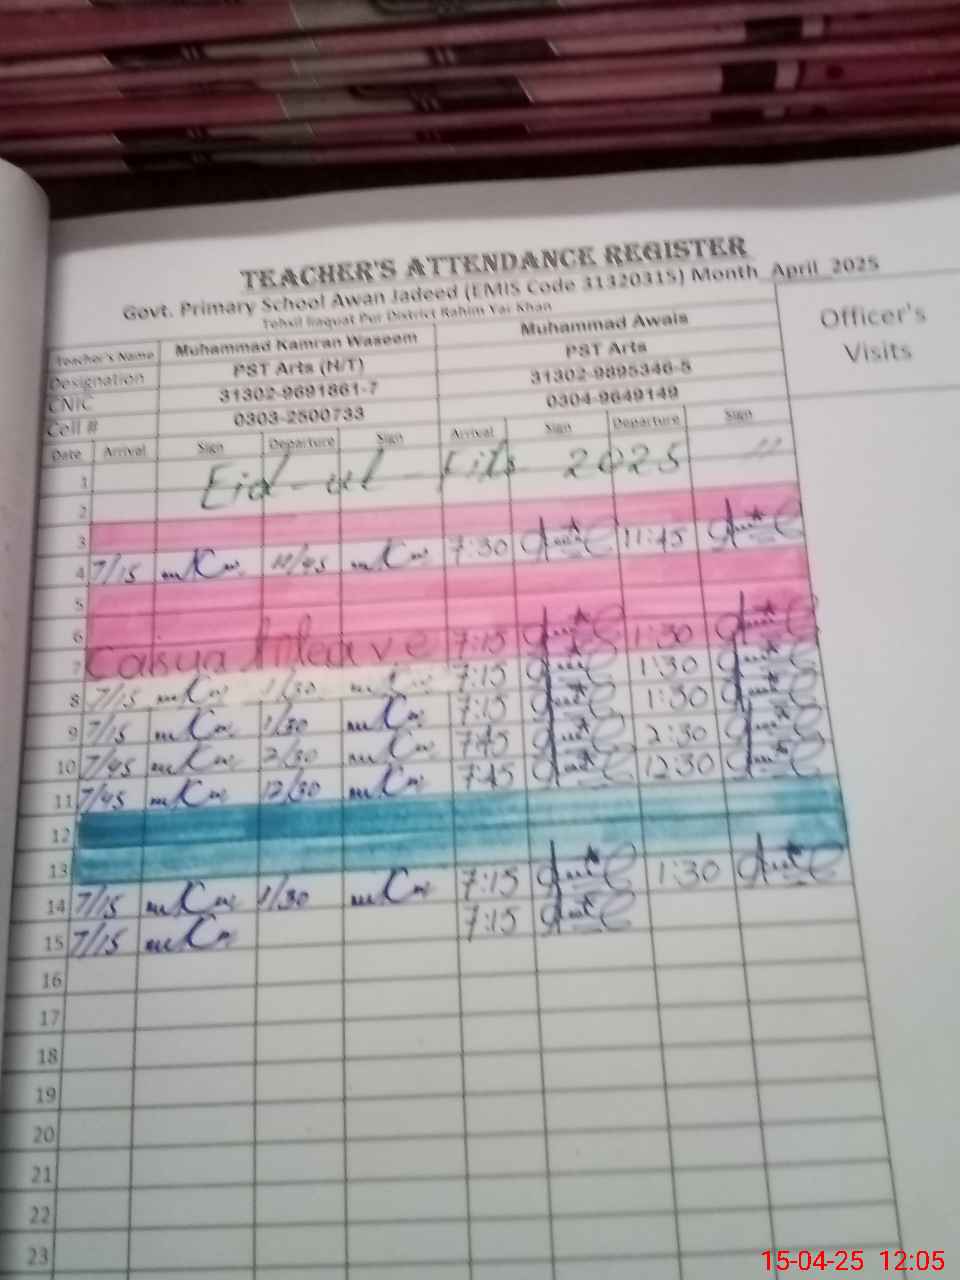 TEACHER'S ATTENDANCE REGISTER
Govt. Primary School Awan Jadeed (EMIS Code 31320315) Month April 2025
Tehsil liaquat Pur District Rahim Yar Khan
Teacher's Name Muhammad Kamran Waseem Muhammad Awais Officer's Visits
Designation PST Arts (H/T) PST Arts
CNIC 31302-9691861-7 31302-9895346-5
Cell # 0303-2500733 0304-9649149
Date Arrival Sign Departure Sign Arrival Sign Departure Sign
1 Eid-ul-Fitr 2025 "
2
3
4 7/15 10/45 7:30 11:45
5
6
7 leave 7:15 1:30
8 7/15 1/30 7:15 1:30
9 7/15 1/30 7:15 1:30
10 7/45 2/30 7:45 2:30
11 7/45 12/30 7:45 12:30
12
13
14 7/15 1/30 7:15 1:30
15 7/15 7:15
16
17
18
19
20
21
22
23
15-04-25 12:05